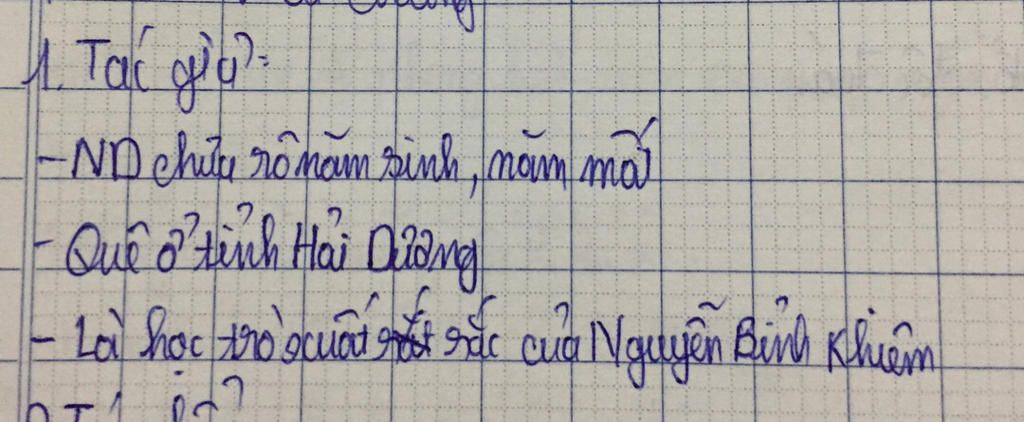 1. Tác giả:
- ND chưa rõ năm sinh, năm mất
- Quê ở tỉnh Hải Dương
- Là học trò xuất sắc của Nguyễn Bỉnh Khiêm